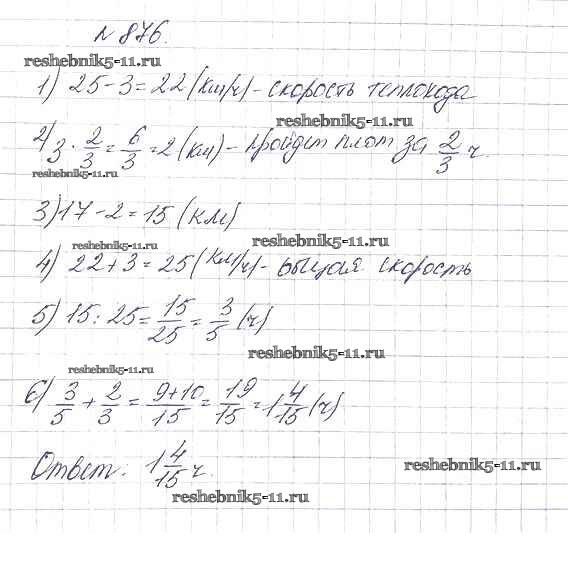 № 876.
reshebnik5-11.ru
1) 25 - 3 = 22 (км/ч) - скорость теплохода
reshebnik5-11.ru
2) 3 · 2/3 = 6/3 = 2 (км) - пройдет плот за 2/3 ч.
reshebnik5-11.ru
3) 17 - 2 = 15 (км)
reshebnik5-11.ru reshebnik5-11.ru
4) 22 + 3 = 25 (км/ч) - общая скорость
5) 15 : 25 = 15/25 = 3/5 (ч)
reshebnik5-11.ru
reshebnik5-11.ru
6) 3/5 + 2/3 = 9+10/15 = 19/15 = 1 4/15 (ч)
Ответ: 1 4/15 ч.
reshebnik5-11.ru
reshebnik5-11.ru